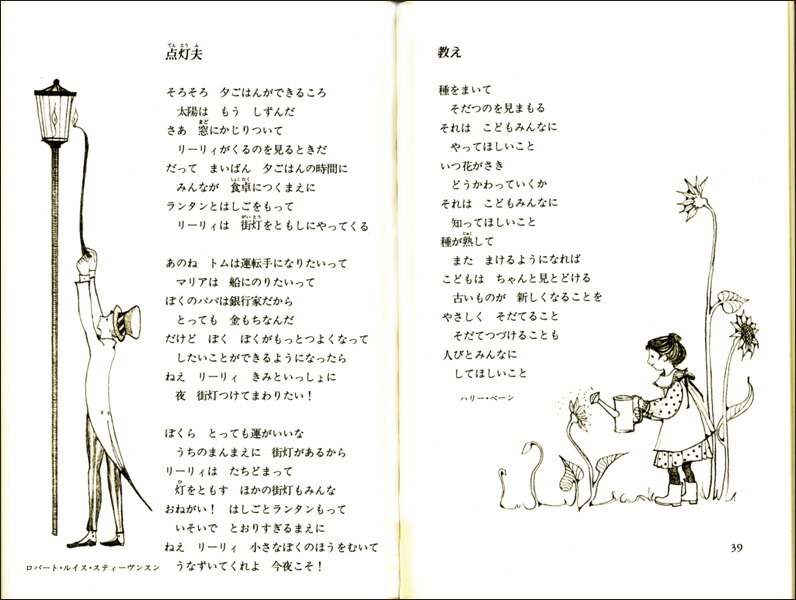 点灯夫
そろそろ　夕ごはんができるころ
太陽は　もう　しずんだ
さあ　窓にかじりついて
リーリィがくるのを見るときだ
だって　まいばん　夕ごはんの時間に
みんなが　食卓につくまえに
ランタンとはしごをもって
リーリィは　街灯をともしにやってくる
あのね　トムは運転手になりたいって
マリアは　船にのりたいって
ぼくのパパは銀行家だから
とっても　金もちなんだ
だけど　ぼく　ぼくがもっとつよくなって
したいことができるようになったら
ねえ　リーリィ　きみといっしょに
夜　街灯つけてまわりたい！
ぼくら　とっても運がいいな
うちのまんまえに　街灯があるから
リーリィは　たちどまって
灯をともす　ほかの街灯もみんな
おねがい！　はしごとランタンもって
いそいで　とおりすぎるまえに
ねえ　リーリィ　小さなぼくのほうをむいて
うなずいてくれよ　今夜こそ！
ロバート・ルイス・スティーヴンスン
教え
種をまいて
そだつのを見まもる
それは　こどもみんなに
やってほしいこと
いつ花がさき
どうかわっていくか
それは　こどもみんなに
知ってほしいこと
種が熟して
また　まけるようになれば
こどもは　ちゃんと見とどける
古いものが　新しくなることを
やさしく　そだてること
そだてつづけることも
人びとみんなに
してほしいこと
ハリー・ベーン
39